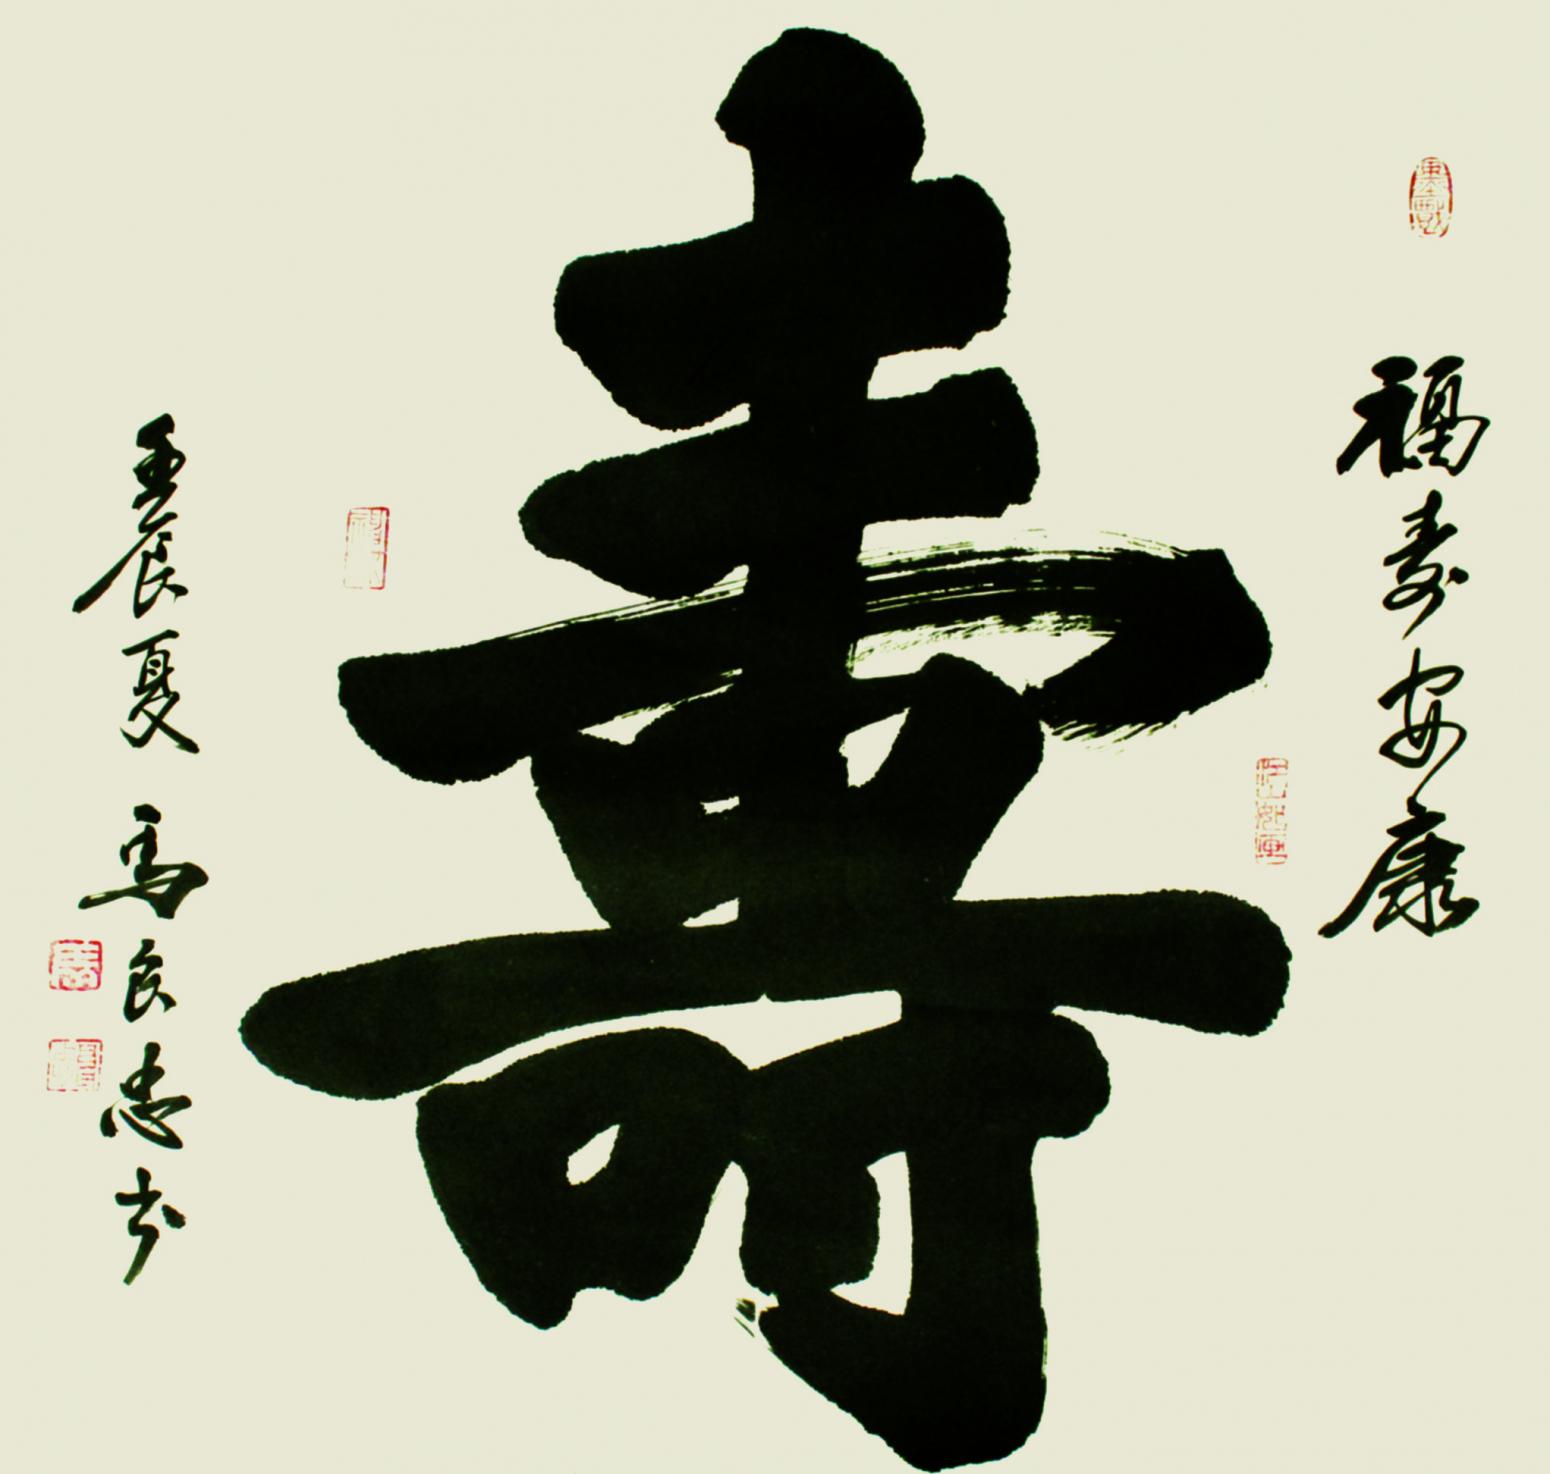 福寿安康
壽
壬辰夏 馬良忠书